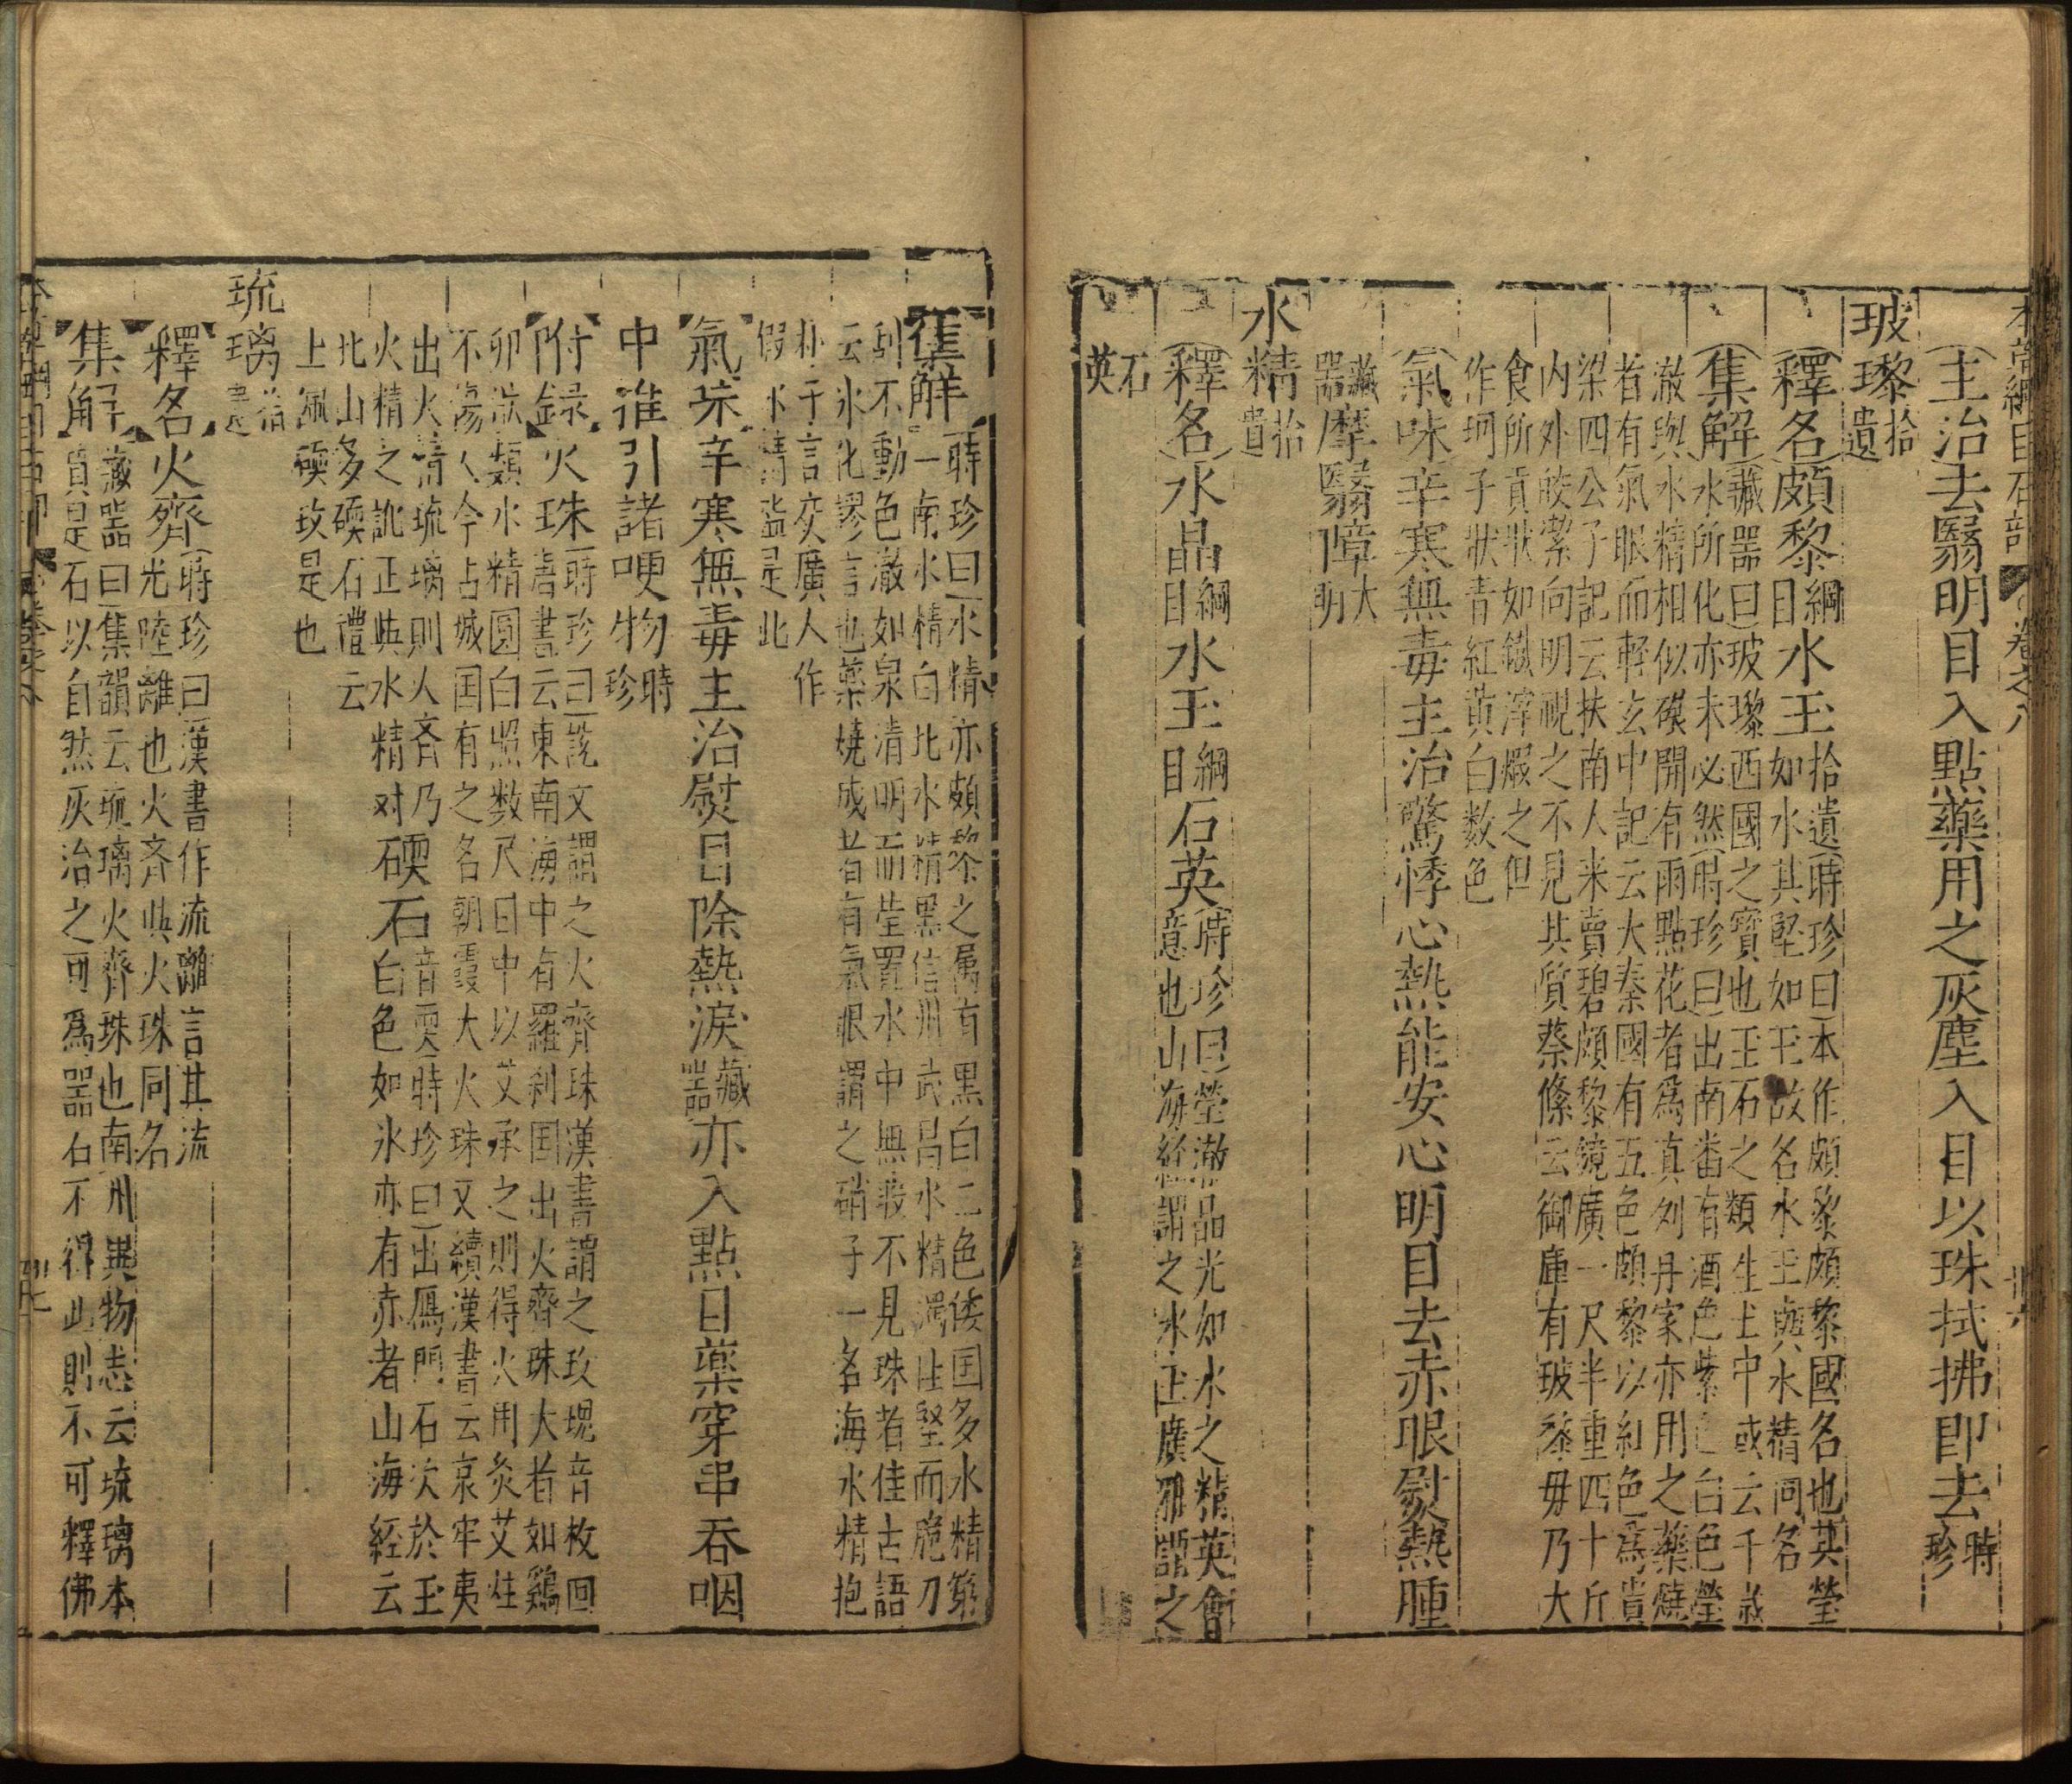 本草綱目石部 卷之八 卅六
主治去翳明目入點藥用之灰塵入目以珠拭拂即去時珍
玻瓈拾遺
釋名頗黎綱目水玉拾遺時珍曰本作頗黎頗黎國名也其瑩
如水其堅如玉故名水玉與水精同名
集解藏器曰玻瓈西國之寶也玉石之類生土中或云千歲
水所化亦未必然時珍曰出南番有酒色紫色白色瑩
澈與水精相似碾開有雨點花者為真列丹家亦用之藥燒
者有氣眼而輕玄中記云大秦國有五色頗黎以紅色為貴
梁四公子記云扶南人来賣碧頗黎鏡廣一尺半重四十斤
内外皎潔向明視之不見其質蔡絛云御庫有玻瓈毋乃大
食所貢狀如鐵滓煅之但
作珂子狀青紅黄白数色
氣味辛寒無毒主治驚悸心熱能安心明目去赤眼熨熱腫
藏器摩翳障大明
水精拾遺
釋名水晶綱目水玉綱目石英時珍曰瑩澈晶光如水之精英會
意也山海経謂之水玉廣雅謂之
石英
集解時珍曰水精亦頗黎之属有黒白二色倭国多水精第
一南水精白北水精黒信州武昌水精濁性堅而脆刀
刮不動色澈如泉清明而瑩置水中無瑕不見珠者佳古語
云氷化謬言也藥燒成者有氣眼謂之硝子一名海水精抱
朴子言交廣人作
假水精盌是此
氣味辛寒無毒主治熨目除熱淚藏器亦入點目藥穿串吞咽
中推引諸哽物時珍
附録火珠時珍曰說文謂之火齊珠漢書謂之玫瑰音枚回
唐書云東南海中有羅刹国出火齊珠大者如鷄
卵狀類水精圓白照数尺日中以艾承之則得火用灸艾炷
不傷人今占城国有之名朝霞大火珠又續漢書云哀牢夷
出火精琉璃則火斉乃
火精之訛正與水精对碝石音耎時珍曰出鴈門石次於玉
白色如氷亦有赤者山海経云
北山多碝石禮云
士佩碝玫是也
琉璃拾遺
釋名火齊時珍曰漢書作流離言其流
光陸離也火斉與火珠同名
集解藏器曰集韻云琉璃火齊珠也南州異物志云琉璃本
質是石以自然灰治之可爲器石不得此則不可釋佛